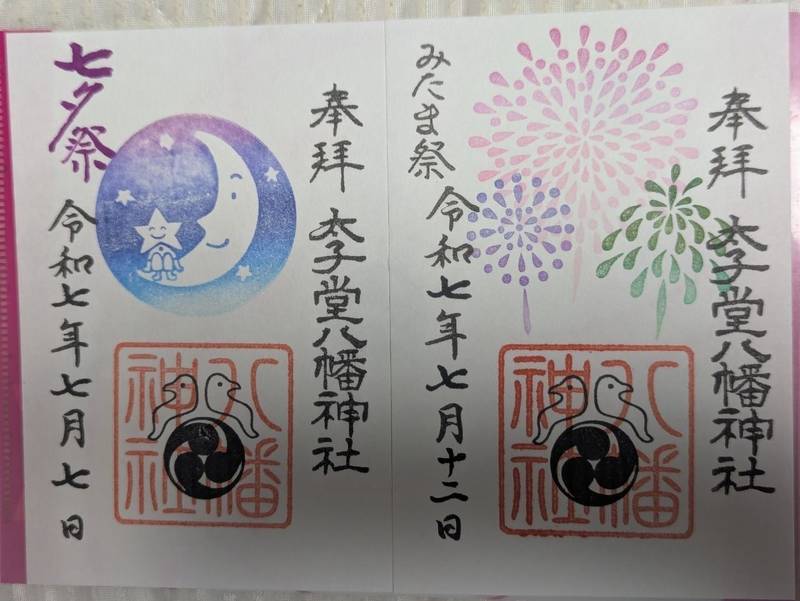 奉拝
太子堂八幡神社
みたま祭
令和七年七月十二日
八幡
神社
奉拝
太子堂八幡神社
七夕祭
令和七年七月七日
八幡
神社